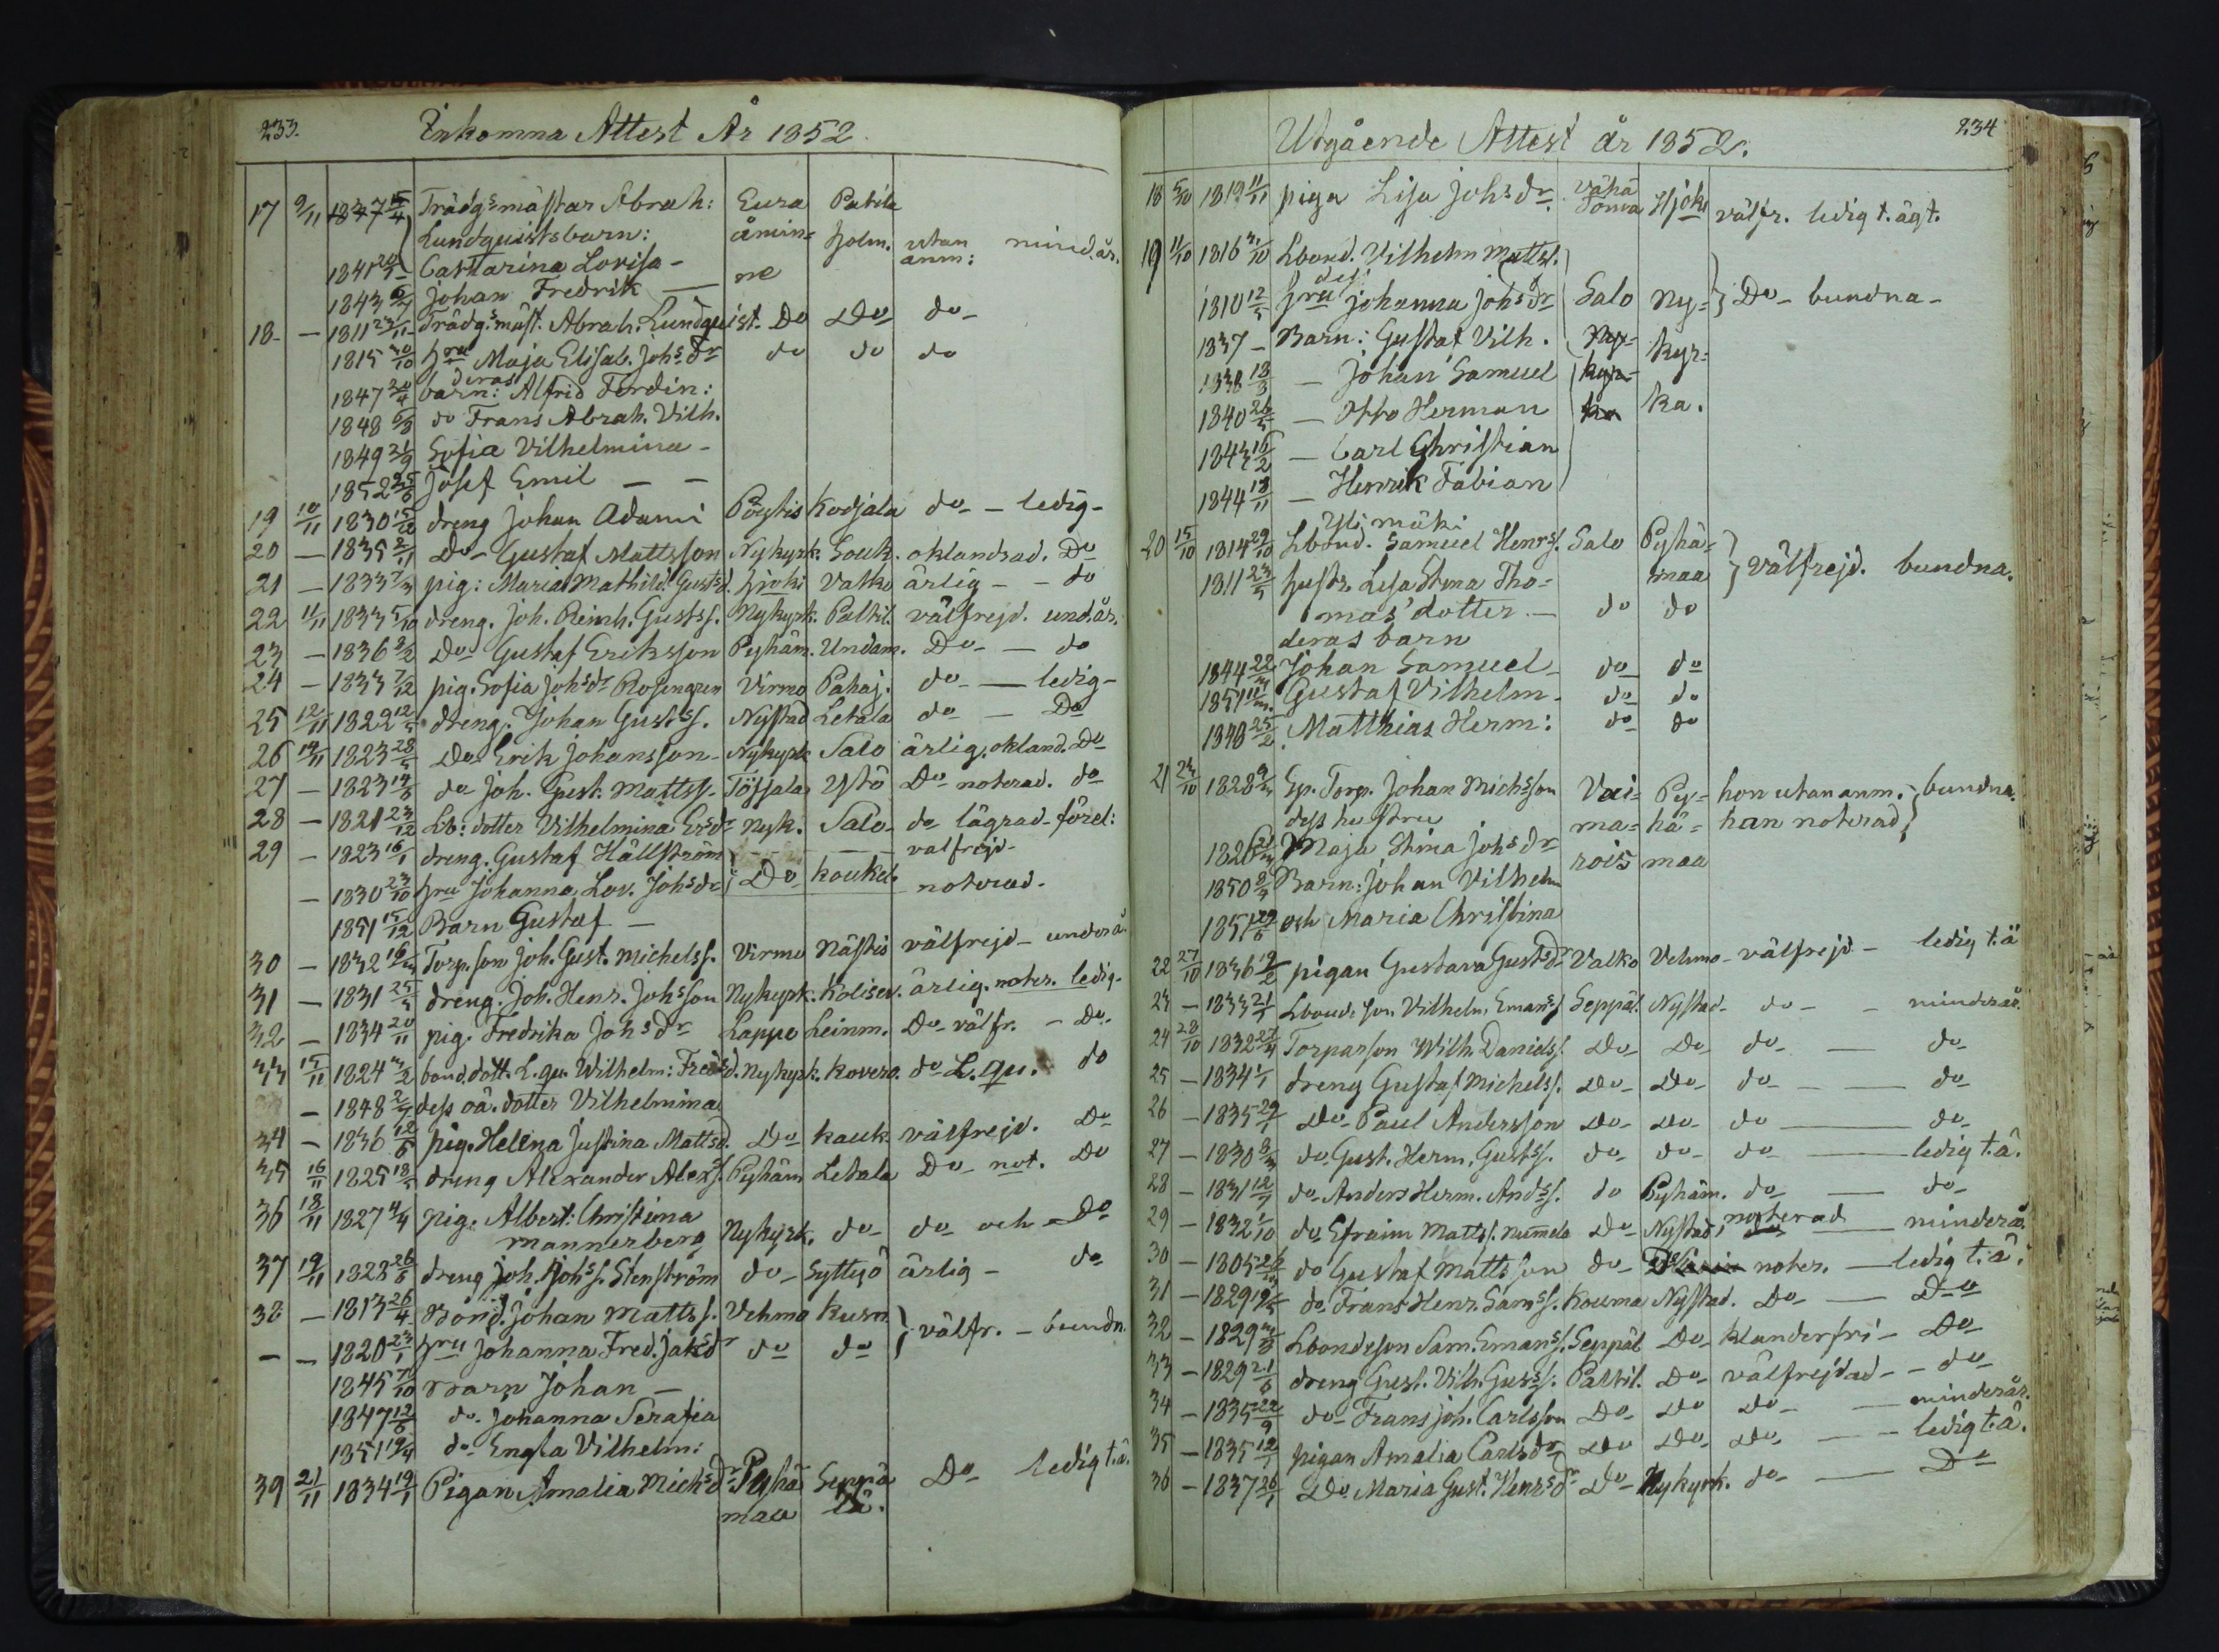 233.
Inkomna Attest År 1852
17 9/11 1837 15/4 Trädg:s mästar Abrah: Eura Patila
Lundquists barn: åmin= holm. utan mind.år.
1841 24/5 Cartarina Lovisa - ne anm:
1843 6/7 Johan Fredrik —
18 - 1811 23/11 Trädg:s mäst. Abrah. Lundquist. Do Do do
1815 30/10 Hru Maja Elisab. Johs dr do do do
deras
1847 20/4 barn: Alfrid Ferdin:
1848 6/8 do Frans Abrah. Vilh.
1849 21/9 Sofia Vilhelmina -
1852 25/6 Josef Emil — —
19 10/11 1830 15/12 dreng Johan Adami Pöytis Kodjala do - ledig -
20 — 1835 2/11 Do Gustaf Mattsson Nykyrk. Souk. oklandrad. Do
21 — 1833 7/3 pig: Maria Mathild. Gustsd. Hjoki Valko ärlig - - do
22 11/11 1833 5/10 dreng. Joh. Reinh. Gustss. Nykyrk. Paltil. välfrejd. und.år.
23 — 1836 8/2 Do Gustaf Eriksson Pyhäm. Undam. Do — do
24 — 1833 7/12 pig. Sofia Johsdr Rosengren Virmo Pahaj. do — ledig -
25 12/11 1822 12/5 dreng. Johan Gustss. Nystad Letala do — Do
26 14/11 1823 28/5 Do Erik Johansson - Nykyrk Salo ärlig. okland. Do
27 — 1823 14/8 do Joh. Gust. Mattss. Töfsala Ystö Do noterad. do
28 — 1821 23/12 Lb: dotter Vilhelmina Ersdr Nyk. Salo do lägrad - förel:
29 — 1823 16/1 dreng. Gustaf Hällström välfrejd -
— 1830 23/10 Hru Johanna Lov. Johsdr } Do koukel. noterad.
1851 15/12 Barn Gustaf —
30 — 1832 16/3 Torp. son Joh. Gust. Michelss. Virmo Nästis välfrejd - under å.
31 — 1831 25/5 dreng. Joh. Henr. Johsson Nykyrk. Kolisev. ärlig. noter. ledig -
32 — 1834 20/11 pig. Fredrika Johsdr Lappo Leinm. Do välfr. - Do
33 15/11 1824 3/2 bond. dott. L. qu. Wilhelm: Fredsd. Nykyrk. Kovero. do L. qu. do
— 1848 2/7 dess oä. dotter Vilhelmina
34 — 1836 12/6 pig. Helena Justina Mattsd. Do kauk. välfrejd. Do
35 16/11 1825 18/5 dreng Alexander Alexs. Pyhäm Letala Do not. Do
36 18/11 1827 4/4 pig. Albert: Christina
Mannerberg Nykyrk. do do och Do
37 19/11 1828 26/6 dreng Joh. Johss. Stenström do Syttyö ärlig - do
38 — 1813 26/4 Bond. Johan Mattss. Vehmo kusn.
— — 1820 23/1 Hru Johanna Fred. Jaksdr do do } välfr. - bundn.
1845 7/10 Barn Johan —
1847 12/6 do Johanna Serafia
1851 19/4 do Engla Vilhelm:
39 21/11 1834 19/1 Pigan Amalia Michsdr Pyhä Seppä Do ledig t.ä.
maa lä.
234
Utgående Attest år 1852.
18 5/10 1819 11/11 piga Lisa Johsdr. Vähä
Torma Hjoki välfr. ledig t. ägt.
19 11/10 1816 31/10 Lbond. Vilhelm Mattss.
dess
1810 12/5 Hru Johanna Johsdr Salo Ny= } Do - bundna -
1837 - Barn: Gustaf Vilh. Ny= kyr=
1838 18/3 — Johan Samuel kyr=
1840 26/5 — Otto Herman ka ka.
1843 16/2 — Carl Christian
1844 18/11 — Henrik Fabian
Yli mäki
20 15/10 1814 29/10 Lbond. Samuel Henrs. Salo Pyhä=
1811 23/5 hustr. Lisa Stina Tho= maa } välfrejd. bundna.
mas'dotter — do do
deras barn
1844 22/3 Johan Samuel - do do
1851 11/3 Gustaf Vilhelm - do do
1848 25/2 Matthias Herm: do do
21 23/10 1828 9/3 Sp. Torp. Johan Michsson Vai= Py= hon utan anm. } bundna.
dess hustru ma= hä= han noterad
1826 21/3 Maja Stina Johsdr rois maa
1850 8/4 Barn: Johan Vilhelm
1851 29/6 och Maria Christina
22 27/10 1836 12/2 pigan Gustava Gustsdr Valko Vehmo - välfrejd - ledig t.ä
23 — 1833 21/1 Lbonds son Vilhelm Emans. Seppäl. Nystad - do - - minderår.
24 28/10 1832 27/4 Torparson Wilh. Danielss. Do Do do — do
25 — 1834 1/1 dreng Gustaf Michelss. Do Do do — do
26 — 1835 29/1 Do Paul Andersson Do Do do — do
27 — 1830 8/3 do Gust. Herm. Gustss. do do do — ledig t.ä.
28 — 1831 12/1 do Anders Herm. Andss. do Pyhäm. do — do
29 — 1832 1/10 do Efraim Mattss. Numela Do Nystad, noterad — minderå.
30 — 1805 26/12 do Gustaf Mattsson do noter. — ledig t.ä.
31 — 1829 19/5 do Frans Henr. Samss. Kouma Nystad. Do — Do
32 — 1829 3/8 Lbondeson Sam. Emanss. Seppäl Do klanderfri - Do
33 — 1829 21/6 dreng Gust. Vilh. Gustss. Paltil. Do välfrejdad - - do
34 — 1835 22/9 do Frans Joh. Carlsson Do Do Do — minderår.
35 — 1835 12/1 pigan Amalia Carlsdr Do Do Do — - ledig t.ä.
36 — 1837 26/1 Do Maria Gust. Henrsdr Do Nykyrk. do — Do